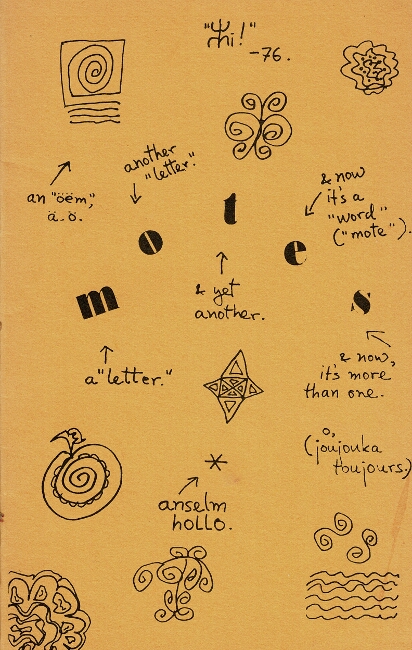 -76.
another
"letter."
an "öëm,"
ä.ö.
& now
it's a
"word"
("mote").
m o t e s
& yet
another.
a "letter."
& now,
it's more
than one.
o,
(joujouka
toujours.)
*
anselm
hollo.